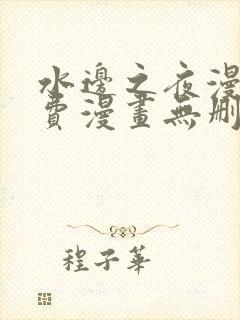 水邊之夜漫
費漫畫無刪
程子華